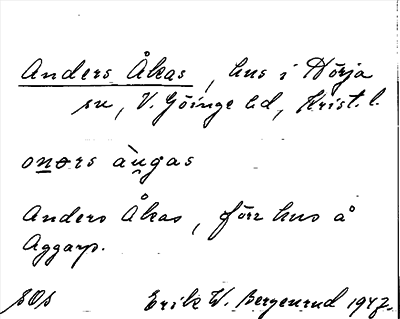 Anders Åkas, hus i Hörja
sn, V. Göinge hd, Krist. l.
onərs àu̯gas
Anders Åkas, förr hus å
Aggarp.
SOs Erik W. Bergenrud 1947.